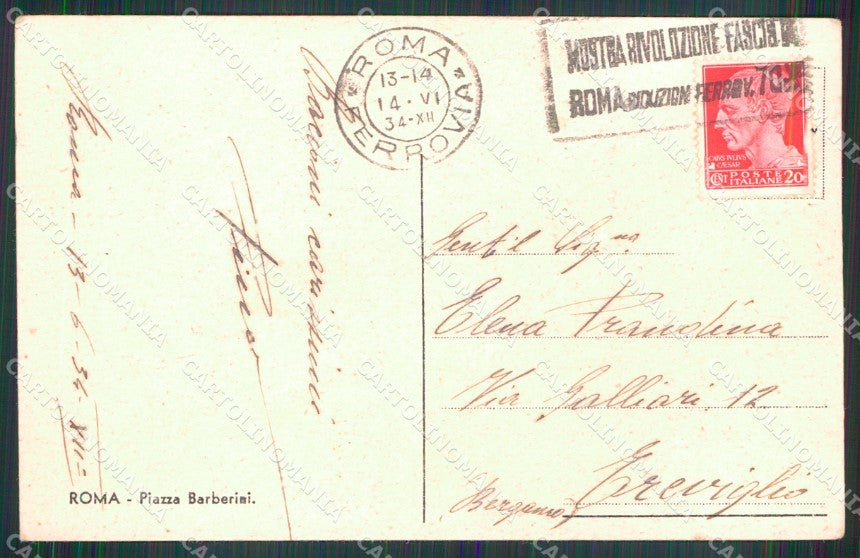 Roma - 13-6-34-XII=
Bacioni carissimi
ROMA
13-14
14·VI
34-XII
FERROVIA
MOSTRA RIVOLUZIONE FASCISTA
ROMA RIDUZIONI FERROV. 70
CAIVS IVLIVS
CAESAR
CENT POSTE 20
ITALIANE
Gentil Sig.na
Elena Frandina
Via Galliari, 12
Treviglio
(Bergamo)
ROMA - Piazza Barberini.
CARTOLINOMANIA